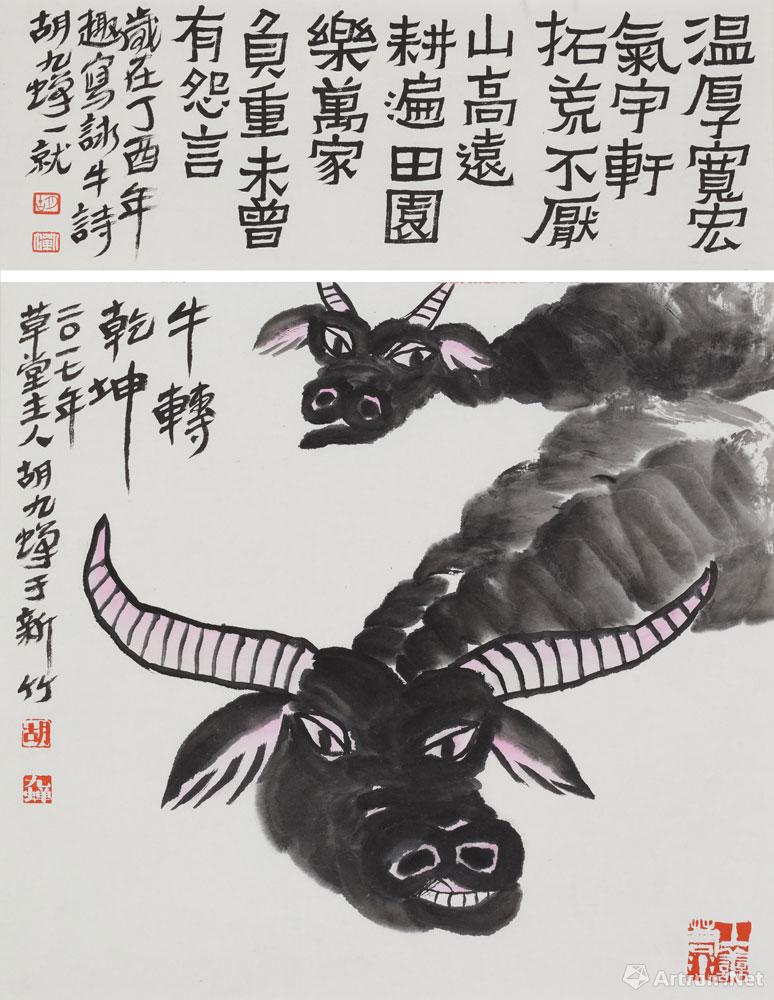 温厚寬宏
氣宇軒
拓荒不厭
山高遠
耕遍田園
樂萬家
負重未曾
有怨言
歲在丁酉年
趣寫詠牛詩
胡九蟬一就
牛轉
乾坤
二〇一七年
草堂主人胡九蟬于新竹
胡
九蟬
Artron.Net